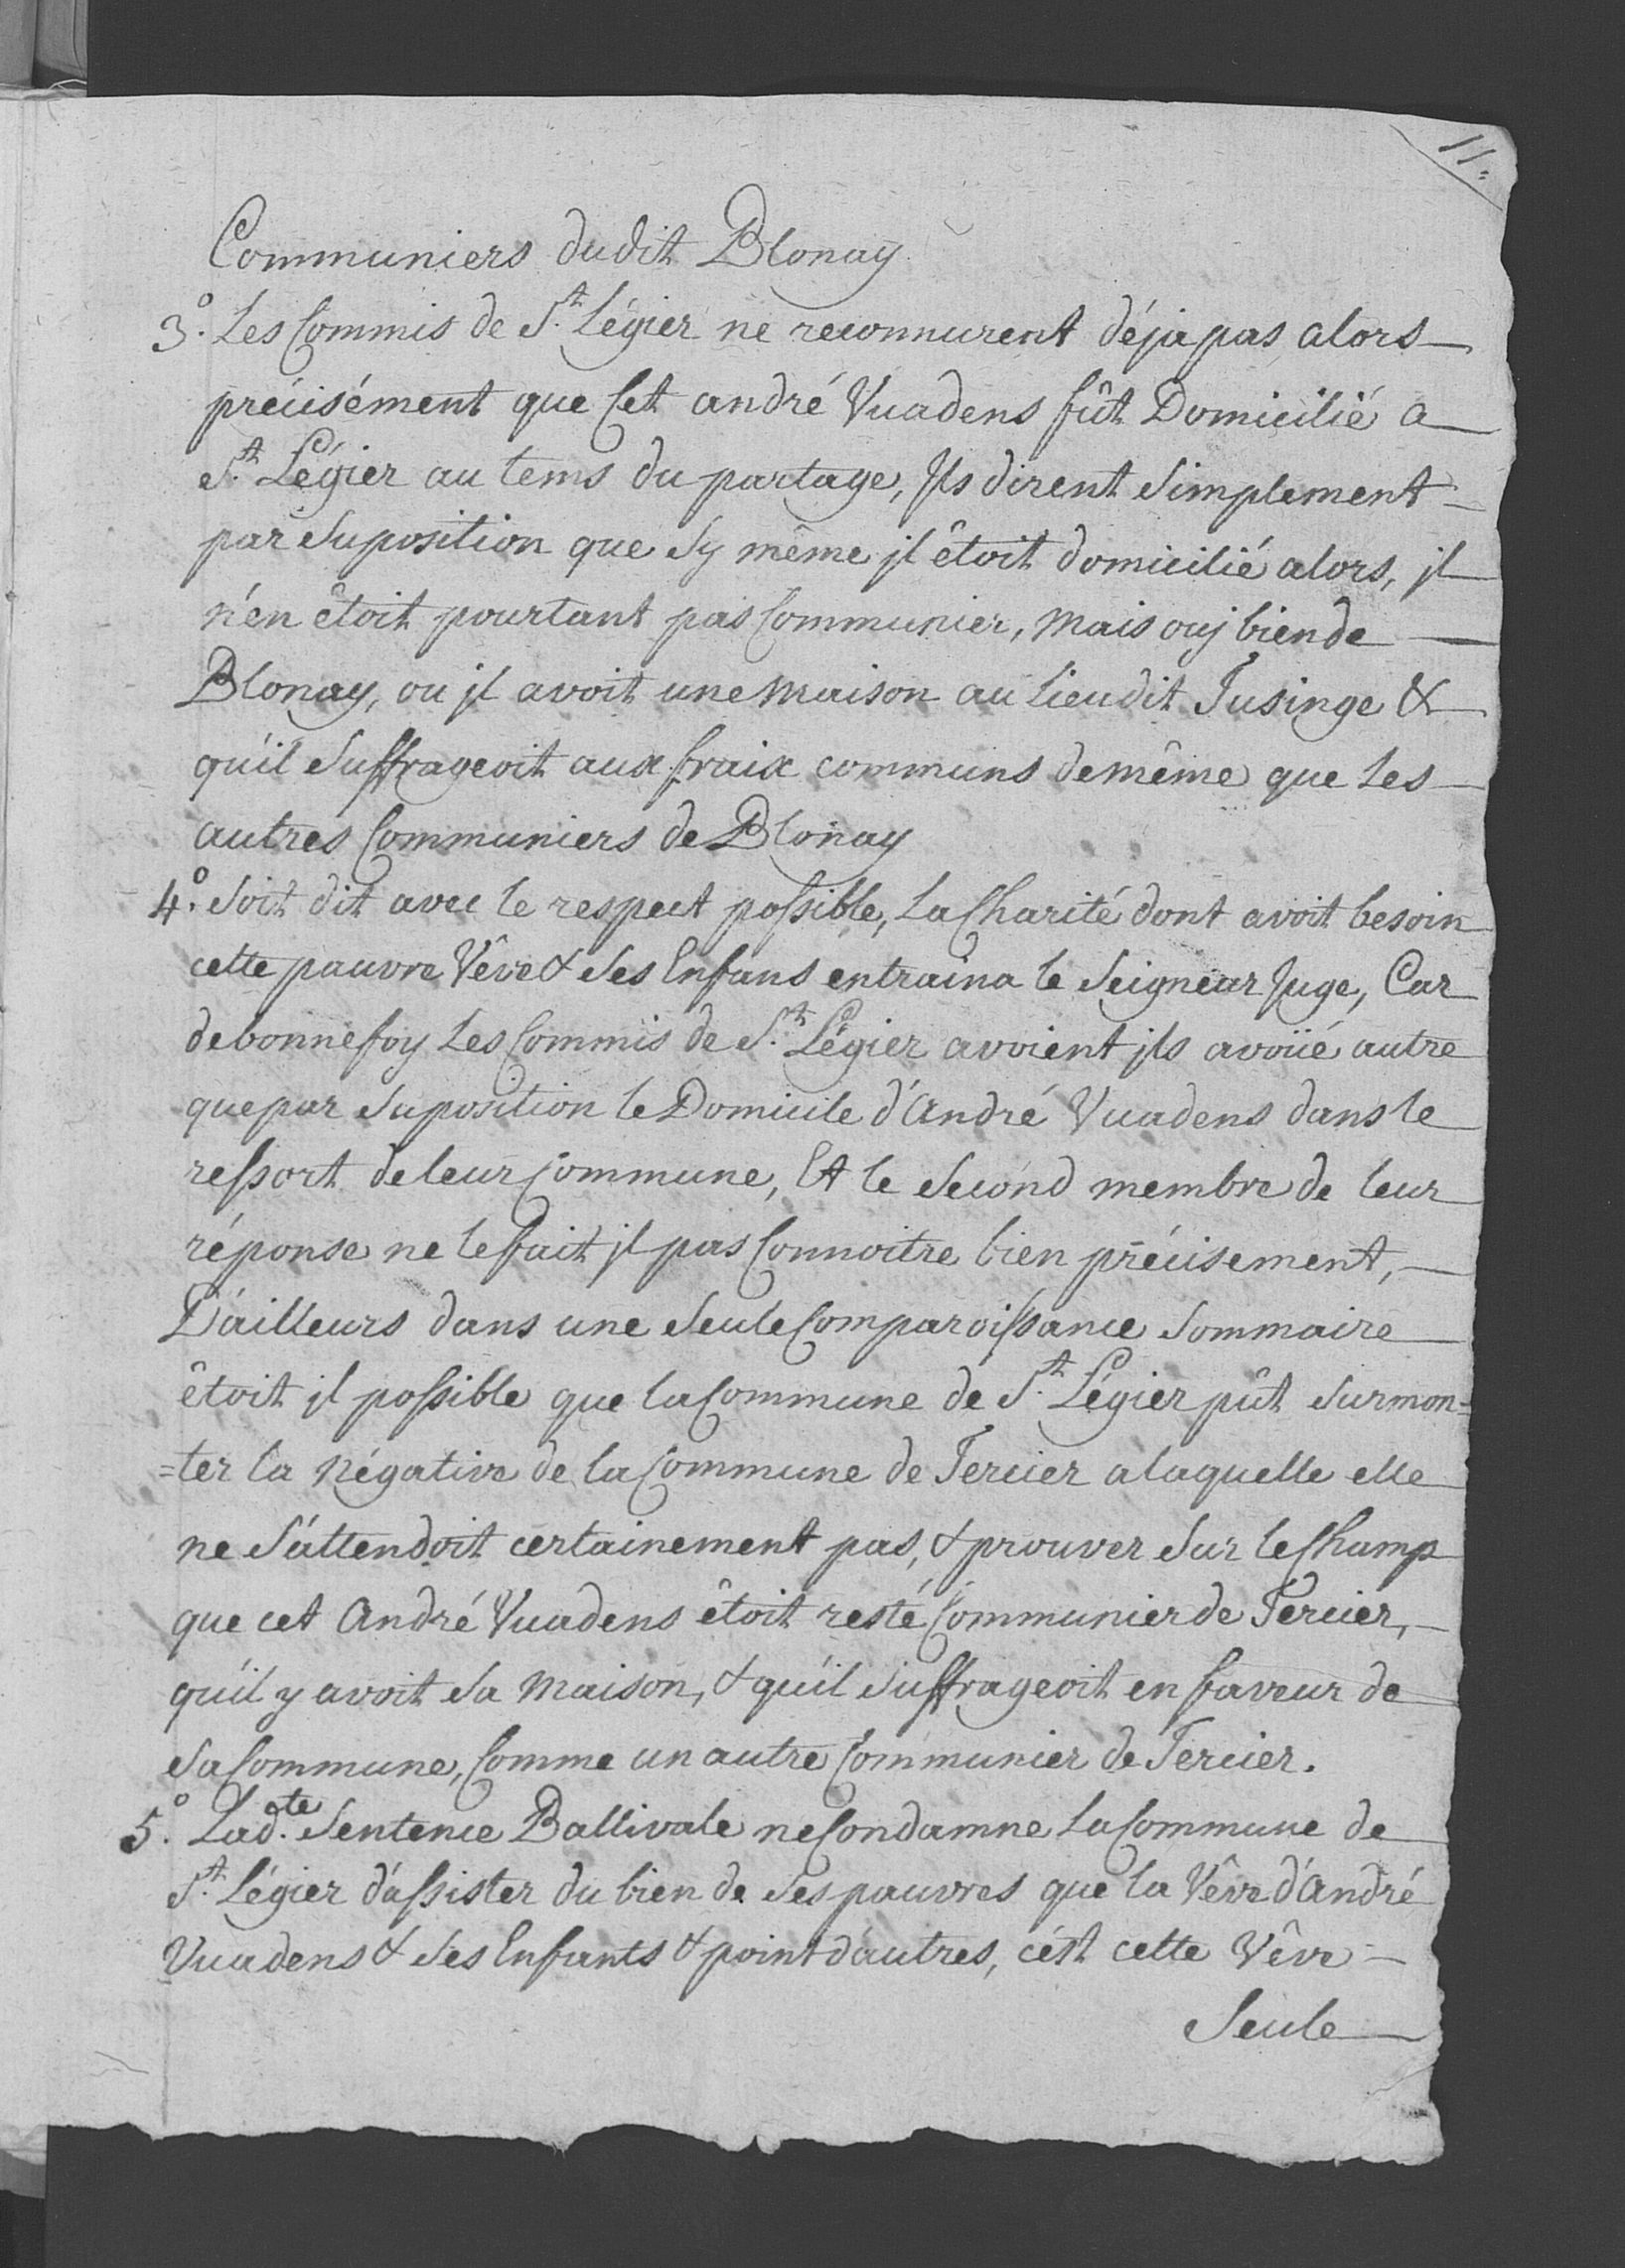 11.
Communiers dudit Blonay
3.° Les Commis de S.t Légier ne reconnurent déja pas alors
précisément que Cet andré Vuadens fût Domicilié a
S.t Légier au tems du partage, Jls dirent simplement
par suposition que sy même jl êtoit domicilié alors, jl
n'en êtoit pourtant pas Communier, mais ouj bien de
Blonay, ou jl avoit une maison au lieu dit Jusinge &
qu'il suffrageoit aux fraix communs de même que les
autres Communiers de Blonay
4.° soit dit avec le respect possible, la Charité dont avoit besoin
cette pauvre Vêve & ses Enfans entraina le seigneur Juge, Car
de bonne foy les Commis de S.t Légier avoient jls avoüé autre
que par suposition le Domicile d'André Vuadens dans le
ressort de leur Commune, Et le second membre de leur
réponse ne le fait jl pas Connoitre bien précisement,
D'ailleurs dans une seule Comparoissance sommaire
êtoit jl possible que la Commune de S.t Légier pût surmon-
=ter la négative de la Commune de Tercier a laquelle elle
ne s'attendoit certainement pas, & prouver sur le Champ
que cet André Vuadens êtoit resté Communier de Tercier,
qu'il y avoit sa maison, & qu'il suffrageoit en faveur de
sa Commune, Comme un autre Communier de Tercier.
5.° Lad.te Sentence Ballivale ne Condamne la Commune de
S.t Légier d'assister du bien de ses pauvres que la Vêve d'André
Vuadens & ses Enfants & point d'autres, c'est cette Vêve
Seule